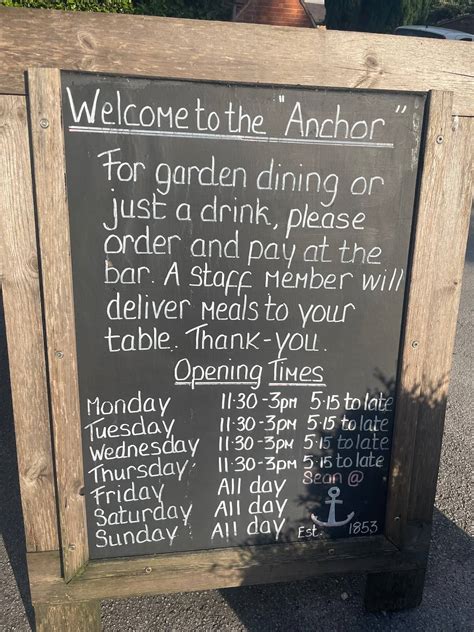 Welcome to the "Anchor"
For garden dining or
just a drink, please
order and pay at the
bar. A staff member will
deliver meals to your
table. Thank-you.
Opening Times
Monday 11·30-3pm 5·15 to late
Tuesday 11·30-3pm 5·15 to late
Wednesday 11·30-3pm 5·15 to late
Thursday 11·30-3pm 5·15 to late
Friday All day Sean @
Saturday All day
Sunday All day Est. 1853